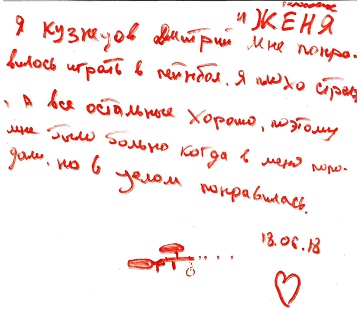 и ЖЕНЯ
Я Кузнецов Дмитрий мне понра-
вилось играть в пейнбол. Я плохо стреляю
, А все остальные хорошо, поэтому
мне было больно когда в меня попа-
дали, но в целом понравилась.
18.06.18